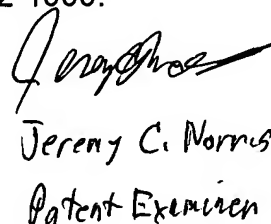 1000.
Jeremy C. Norris
Patent Examiner